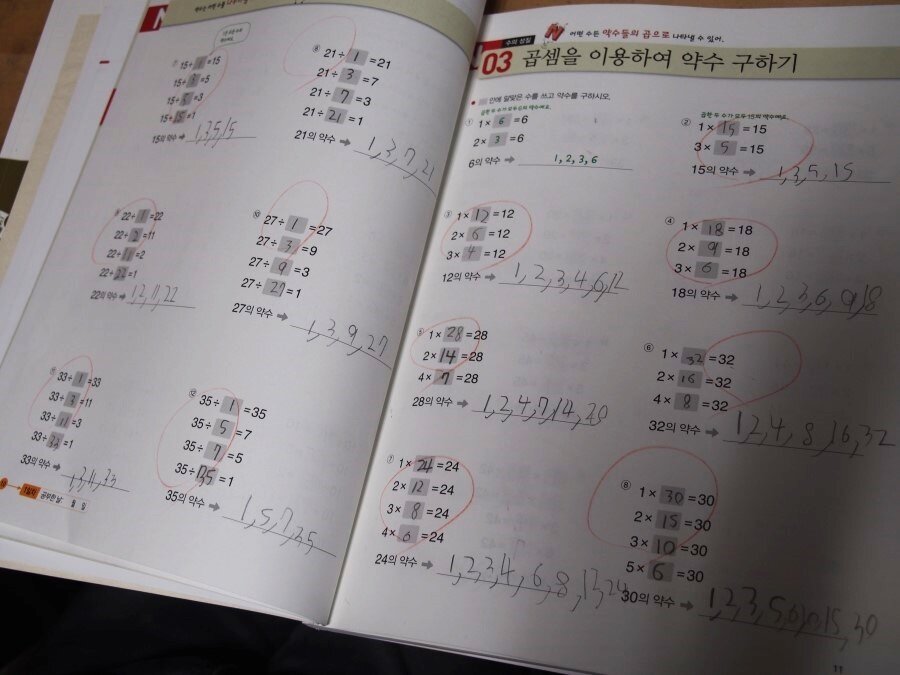 15÷1=15
15÷3=5
15÷5=3
15÷15=1
15의 약수 ➔ 1,3,5,15
⑧ 21÷1=21
21÷3=7
21÷7=3
21÷21=1
21의 약수 ➔ 1,3,7,21
⑨ 22÷1=22
22÷2=11
22÷11=2
22÷22=1
22의 약수 ➔ 1,2,11,22
⑩ 27÷1=27
27÷3=9
27÷9=3
27÷27=1
27의 약수 ➔ 1,3,9,27
⑪ 33÷1=33
33÷3=11
33÷11=3
33÷33=1
33의 약수 ➔ 1,3,11,33
⑫ 35÷1=35
35÷5=7
35÷7=5
35÷35=1
35의 약수 ➔ 1,5,7,35
1일차 공부한 날 월 일
어떤 수든 약수들의 곱으로 나타낼 수 있어.
수의 성질
03 곱셈을 이용하여 약수 구하기
안에 알맞은 수를 쓰고 약수를 구하시오.
곱한 두 수가 모두 6의 약수예요.
① 1×6=6
2×3=6
6의 약수 ➔ 1, 2, 3, 6
곱한 두 수가 모두 15의 약수예요.
② 1×15=15
3×5=15
15의 약수 ➔ 1,3,5,15
③ 1×12=12
2×6=12
3×4=12
12의 약수 ➔ 1,2,3,4,6,12
④ 1×18=18
2×9=18
3×6=18
18의 약수 ➔ 1,2,3,6,9,18
⑤ 1×28=28
2×14=28
4×7=28
28의 약수 ➔ 1,2,4,7,14,20
⑥ 1×32=32
2×16=32
4×8=32
32의 약수 ➔ 1,2,4,8,16,32
⑦ 1×24=24
2×12=24
3×8=24
4×6=24
24의 약수 ➔ 1,2,3,4,6,8,12,24
⑧ 1×30=30
2×15=30
3×10=30
5×6=30
30의 약수 ➔ 1,2,3,5,6,10,15,30
11